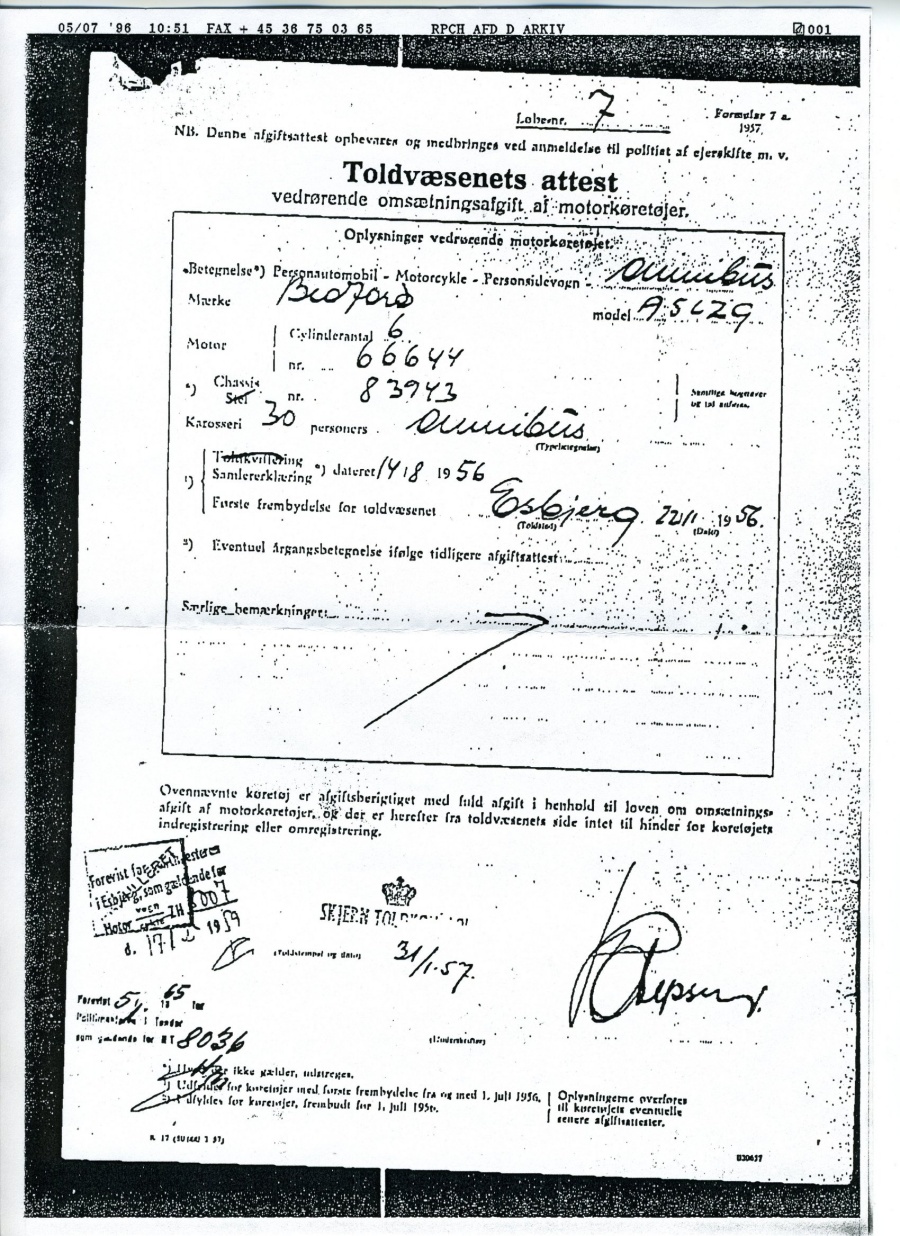 05/07 '96 10:51 FAX + 45 36 75 03 65 RPCH AFD D ARKIV 001
Løbenr. 7
Formular 7 a.
1957.
NB. Denne afgiftsattest opbevares og medbringes ved anmeldelse til politiet af ejerskifte m. v.
Toldvæsenets attest
vedrørende omsætningsafgift af motorkøretøjer.
Oplysninger vedrørende motorkøretøjet:
Betegnelse*) Personautomobil - Motorcykle - Personsidevogn - Omnibus
Mærke Bedford model ASLZG
Motor
Cylinderantal 6
nr. 66644
*) Chassis
Stel nr. 83943
Samtlige bogstaver
og tal anføres.
Karosseri 30 personers Omnibus
(Typebetegnelse)
Toldkvittering
Samlererklæring *) dateret 14/8 1956
¹) Første frembydelse for toldvæsenet Esbjerg 22/11 1956.
(Toldsted) (Dato)
²) Eventuel årgangsbetegnelse ifølge tidligere afgiftsattest:
Særlige bemærkninger:
Ovennævnte køretøj er afgiftsberigtiget med fuld afgift i henhold til loven om omsætnings-
afgift af motorkøretøjer, og der er herefter fra toldvæsenets side intet til hinder for køretøjets
indregistrering eller omregistrering.
Forevist for
i Esbjerg, som gældende for
vogn
Motor cykle ZH 007
d. 17/2 1959
SKJERN
(Toldstempel og dato) 31/1.57.
Forevist 5/1. 1965 for
Politimesteren i Tønder
som gældende for 8036
(Underskrift)
*) ikke gælder, udstreges.
¹) Udfyldes for køretøjer med første frembydelse fra og med 1. juli 1956.
²) Udfyldes for køretøjer, frembudt før 1. juli 1956.
Oplysningerne overføres
til køretøjets eventuelle
senere afgiftsattester.